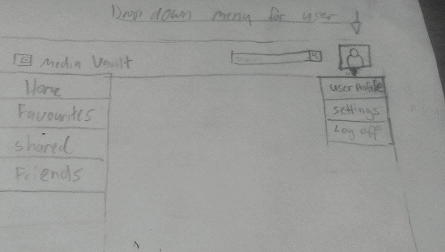 Drop down menu for user
Media Vault
Home
Favourites
shared
Friends
user profile
settings
Log off